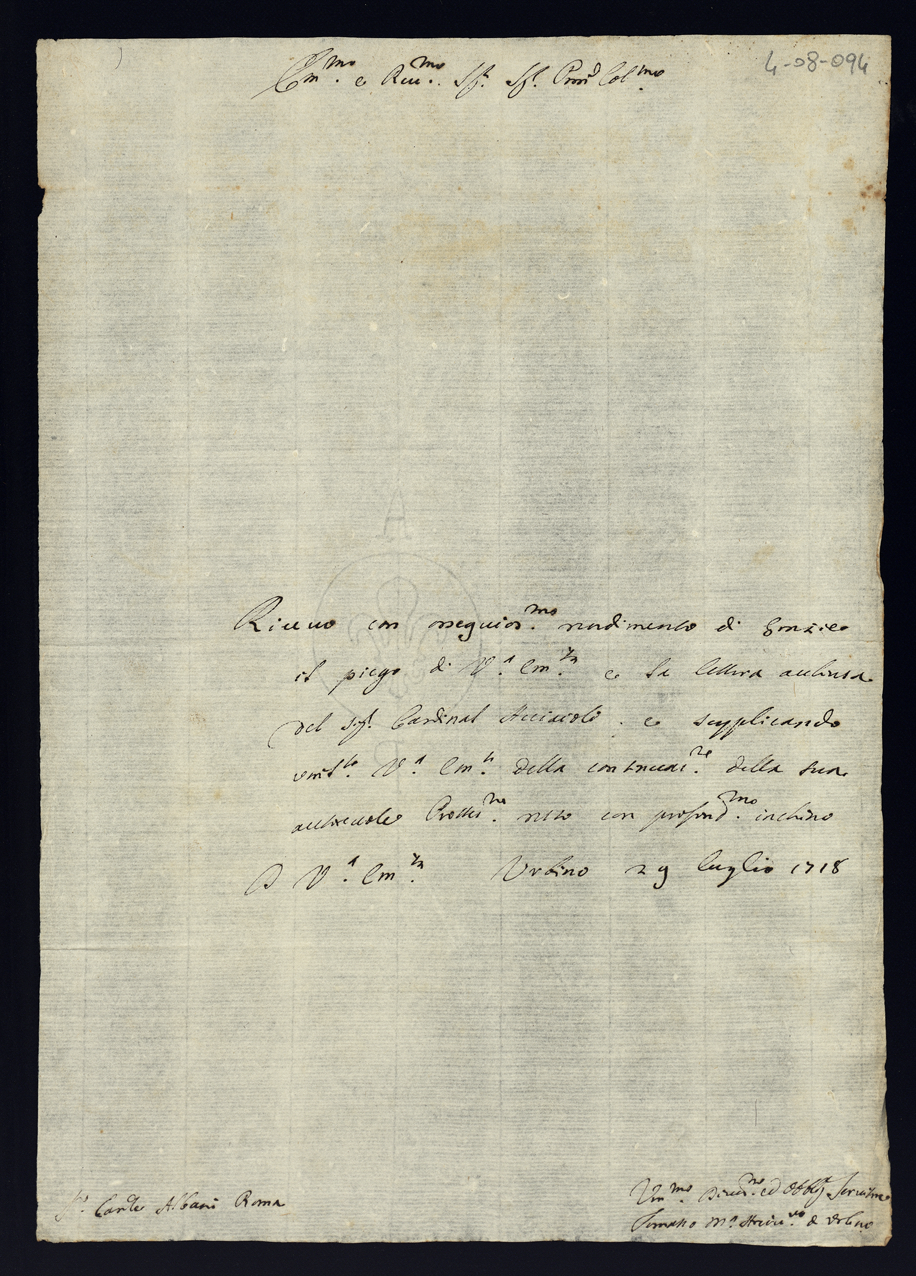 4-08-094
Em.mo e Rev.mo Sig.r Sig.r Pron Col.mo
Ricevo con ossequios.mo rendimento di grazie
il piego di V.a Em.za e la lettera acclusa
del Sig.r Cardinal Acciaioli. e supplicando
V.a Em.za della continuaz.ne della sua
autorevole Protez.ne resto con profond.mo inchino
D V.a Em.za Urbino 29 luglio 1718
Card.le Albani Roma
Um.mo Devot.mo ed Obblig. Servitore
Tomaso M.a Arciv.vo d'Urbino
A